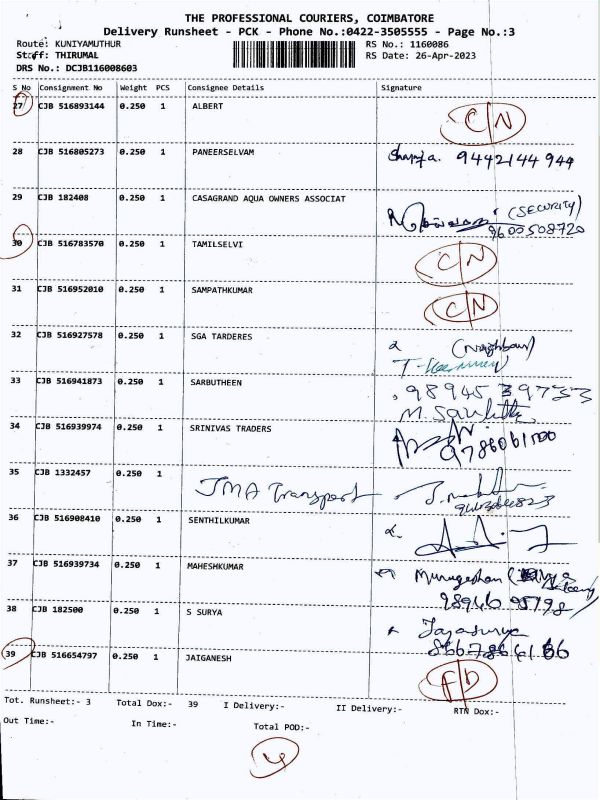 THE PROFESSIONAL COURIERS, COIMBATORE
Delivery Runsheet - PCK - Phone No.:0422-3505555 - Page No.:3
Route: KUNIYAMUTHUR RS No.: 1160086
Staff: THIRUMAL RS Date: 26-Apr-2023
DRS No.: DCJB116008603
S No Consignment No Weight PCS Consignee Details Signature
27 CJB 516893144 0.250 1 ALBERT C/N
28 CJB 516805273 0.250 1 PANEERSELVAM 9442144944
29 CJB 182408 0.250 1 CASAGRAND AQUA OWNERS ASSOCIAT (SECURITY)
9600508720
30 CJB 516783570 0.250 1 TAMILSELVI C/N
31 CJB 516952010 0.250 1 SAMPATHKUMAR C/N
32 CJB 516927578 0.250 1 SGA TARDERES (Neighbour)
33 CJB 516941873 0.250 1 SARBUTHEEN 9894539733
34 CJB 516939974 0.250 1 SRINIVAS TRADERS
35 CJB 1332457 0.250 1 JMA Transport
36 CJB 516908410 0.250 1 SENTHILKUMAR
37 CJB 516939734 0.250 1 MAHESHKUMAR Murugeshan
38 CJB 182500 0.250 1 S SURYA Jayasurya
39 CJB 516654797 0.250 1 JAIGANESH F/D
Tot. Runsheet:- 3 Total Dox:- 39 I Delivery:- II Delivery:- RTN Dox:-
Out Time:- In Time:- Total POD:-
4